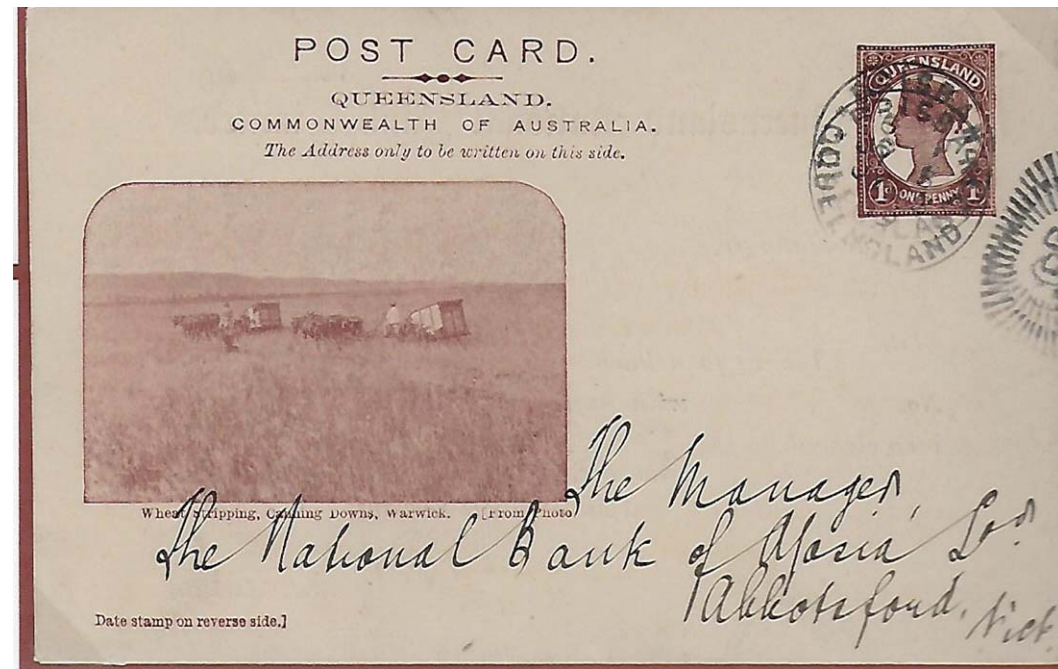 POST CARD.
QUEENSLAND.
COMMONWEALTH OF AUSTRALIA.
The Address only to be written on this side.
QUEENSLAND
1d ONE PENNY 1d
QUEENSLAND
Wheat Stripping, Canning Downs, Warwick. [From Photo
The Manager,
The National Bank of A/asia Ltd
Abbotsford,
Vict
Date stamp on reverse side.]